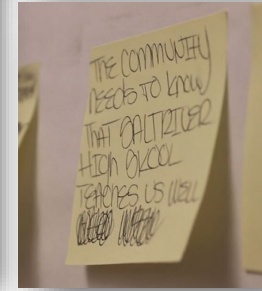 THE COMMUNITY
NEEDS TO KNOW
THAT SALTRIVER
HIGH SKOOL
TEACHES US WELL